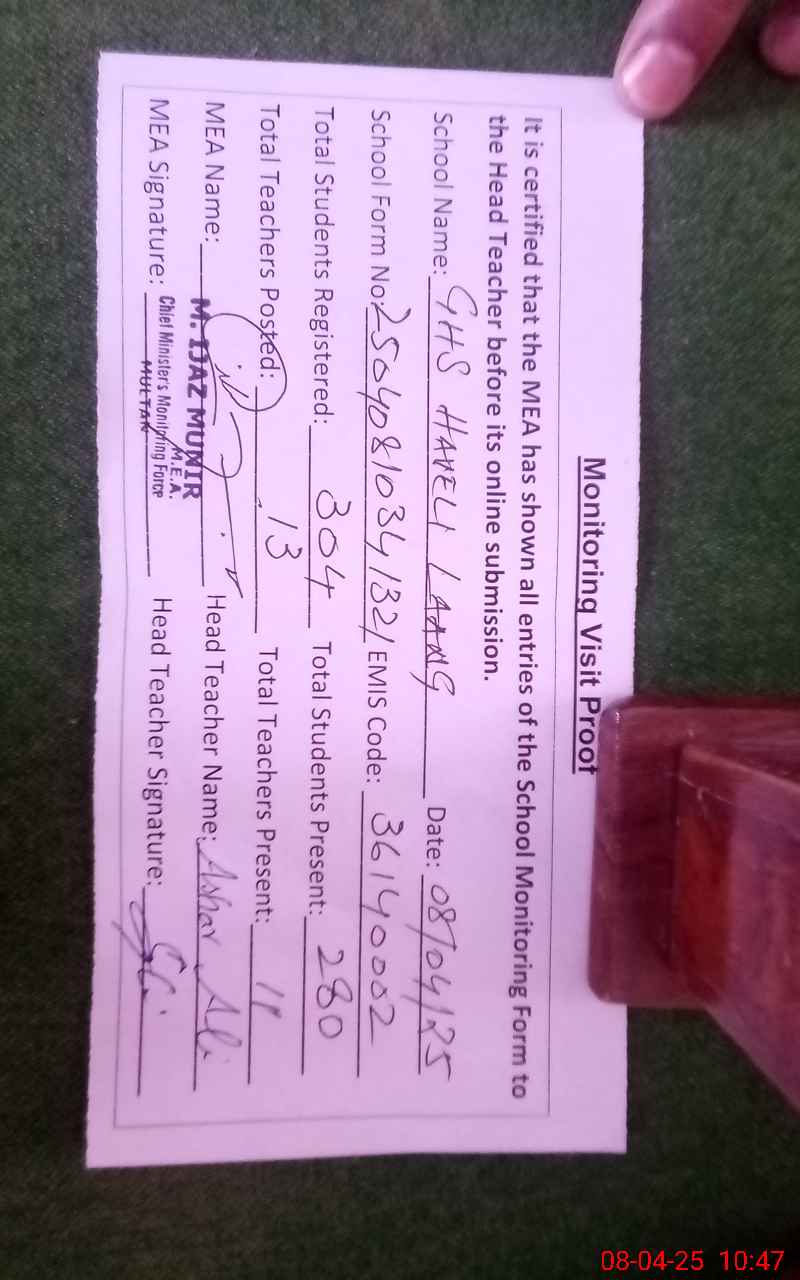 Monitoring Visit Proof
It is certified that the MEA has shown all entries of the School Monitoring Form to
the Head Teacher before its online submission.
School Name: GHS HAVELI LAANG Date: 08/04/25
School Form No: 25040810341321 EMIS Code: 36140002
Total Students Registered: 304 Total Students Present: 280
Total Teachers Posted: 13 Total Teachers Present: 11
MEA Name: M. IJAZ MUNIR Head Teacher Name: Ashar Ali
M.E.A.
Chief Minister's Monitoring Force
MULTAN
MEA Signature: Head Teacher Signature:
08-04-25 10:47